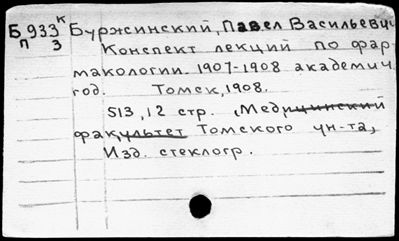 Б 933 К Буржинский, Павел Васильевич
П 3 Конспект лекций по фар-
макологии. 1907-1908 академич.
год. Томск, 1908.
513, 12 стр. (Медицинский
факультет Томского ун-та)
Изд. стеклогр.